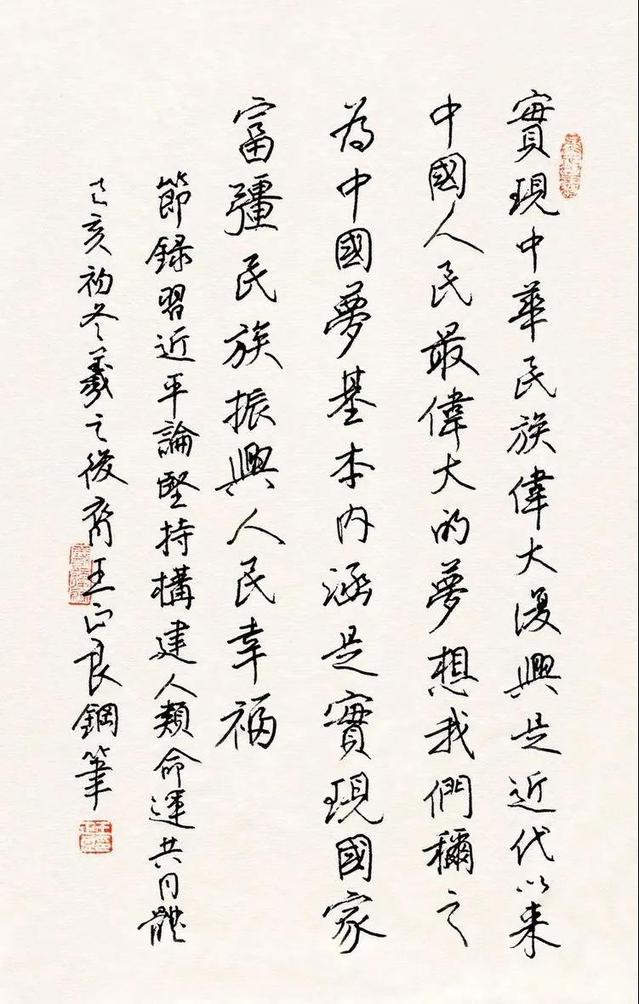 實現中華民族偉大復興是近代以来
中國人民最偉大的夢想我們稱之
為中國夢基本内涵是實現國家
富彊民族振興人民幸福
節録習近平論堅持構建人類命運共同體
己亥初冬羲之後裔王正良鋼筆